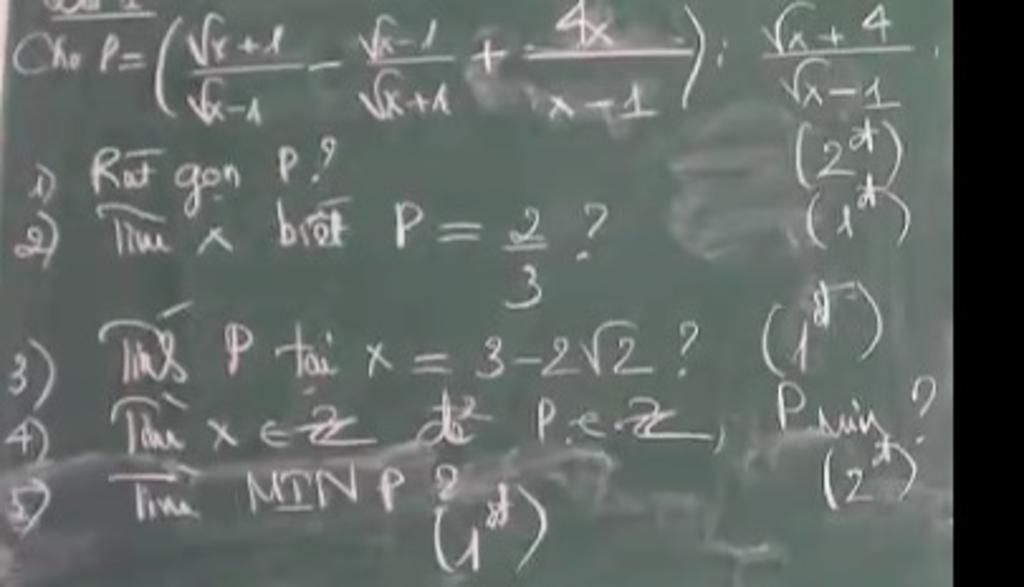 Cho P = ( (√x+1)/(√x-1) - (√x-1)/(√x+1) + 4x/(x-1) ) : (√x+4)/(√x-1) .
1) Rút gọn P? (2đ)
2) Tìm x biết P = 2/3 ? (1đ)
3) Tính P tại x = 3-2√2 ? (1đ)
4) Tìm x ∈ Z để P ∈ Z, P min ? (2đ)
5) Tìm MIN P ? (1đ)